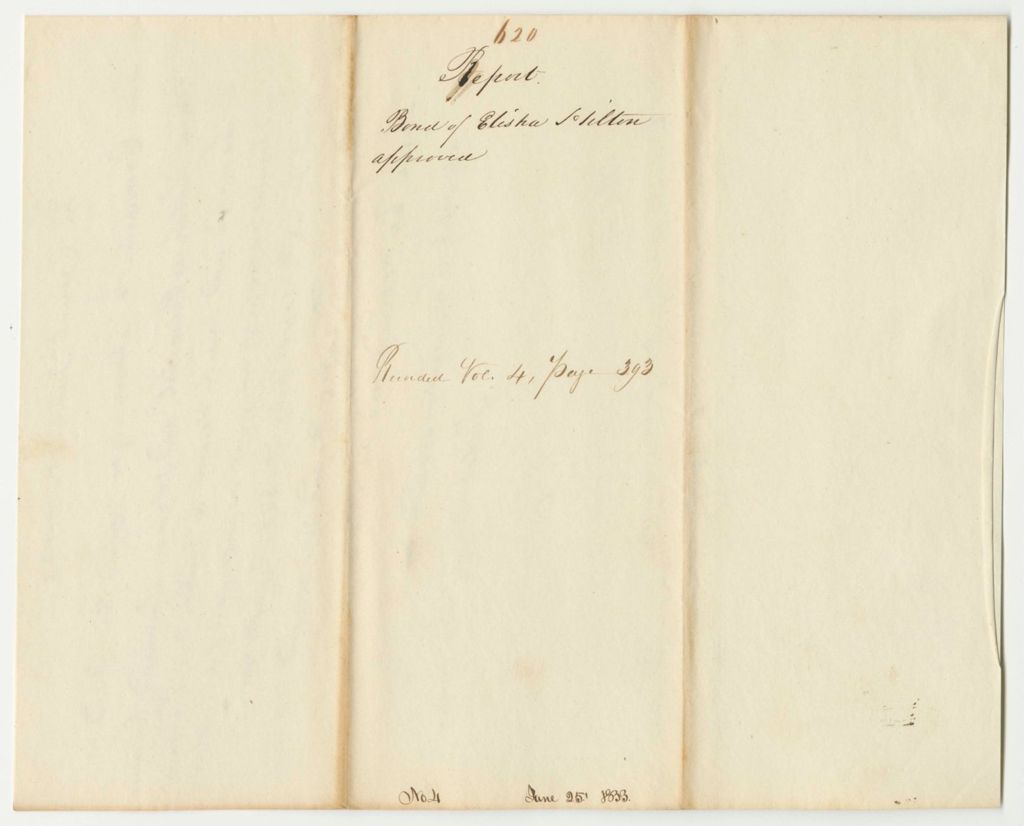 620
Report.
Bond of Elisha Hilton
approved
Recorded Vol. 4, Page 393
No 4 June 25th 1833.